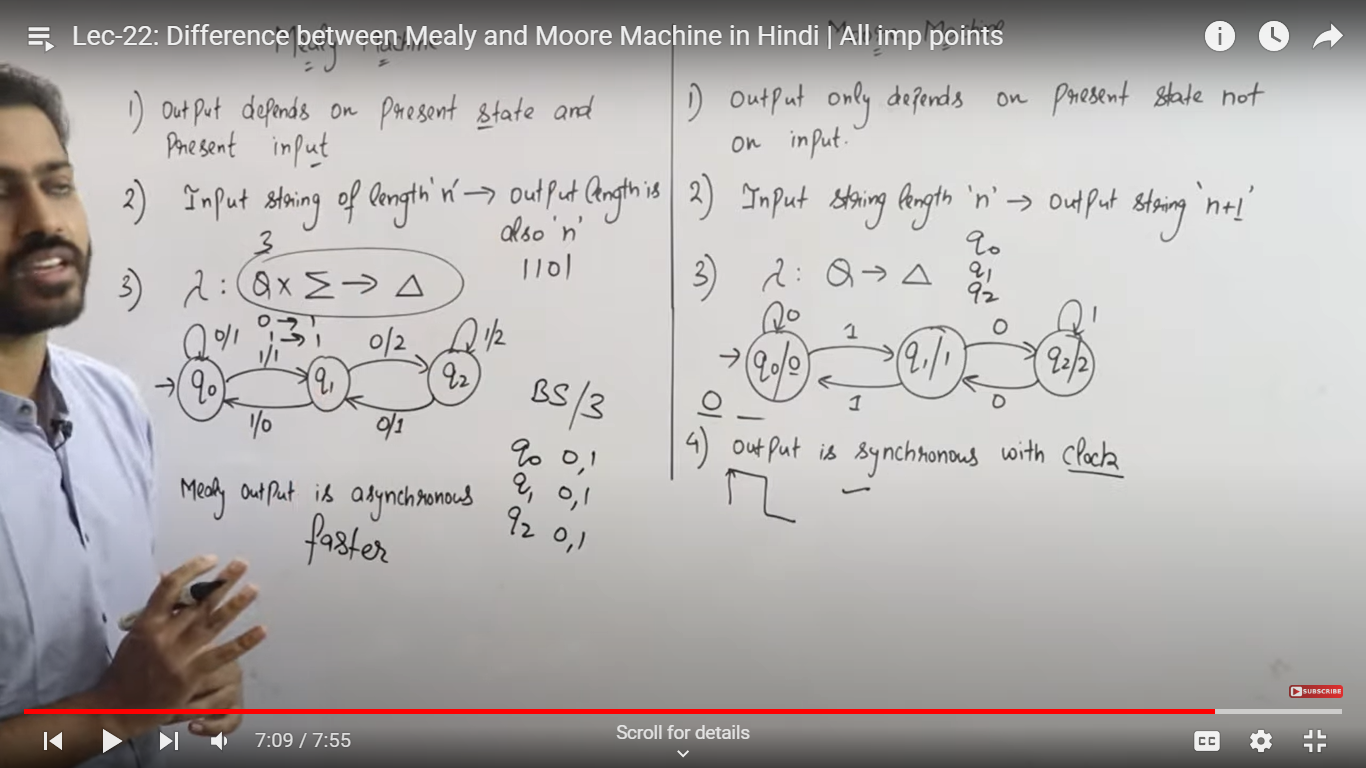 Lec-22: Difference between Mealy and Moore Machine in Hindi | All imp points
Mealy Machine
1) Output depends on Present state and
Present input
2) Input string of length 'n' → output length is
also 'n'
1101
3
3) λ : Q × Σ → Δ
0 → 1
1 → 1
0/1
1/1
0/2
1/2
q0
q1
q2
1/0
0/1
BS/3
q0 0,1
q1 0,1
q2 0,1
Mealy output is asynchronous
faster
Machine
1) Output only depends on Present state not
on input.
2) Input string length 'n' → output string 'n+1'
q0
q1
q2
3) λ : Q → Δ
0
1
0
1
q0/0
q1/1
q2/2
1
0
0
4) Output is synchronous with clock
SUBSCRIBE
7:09 / 7:55
Scroll for details
CC